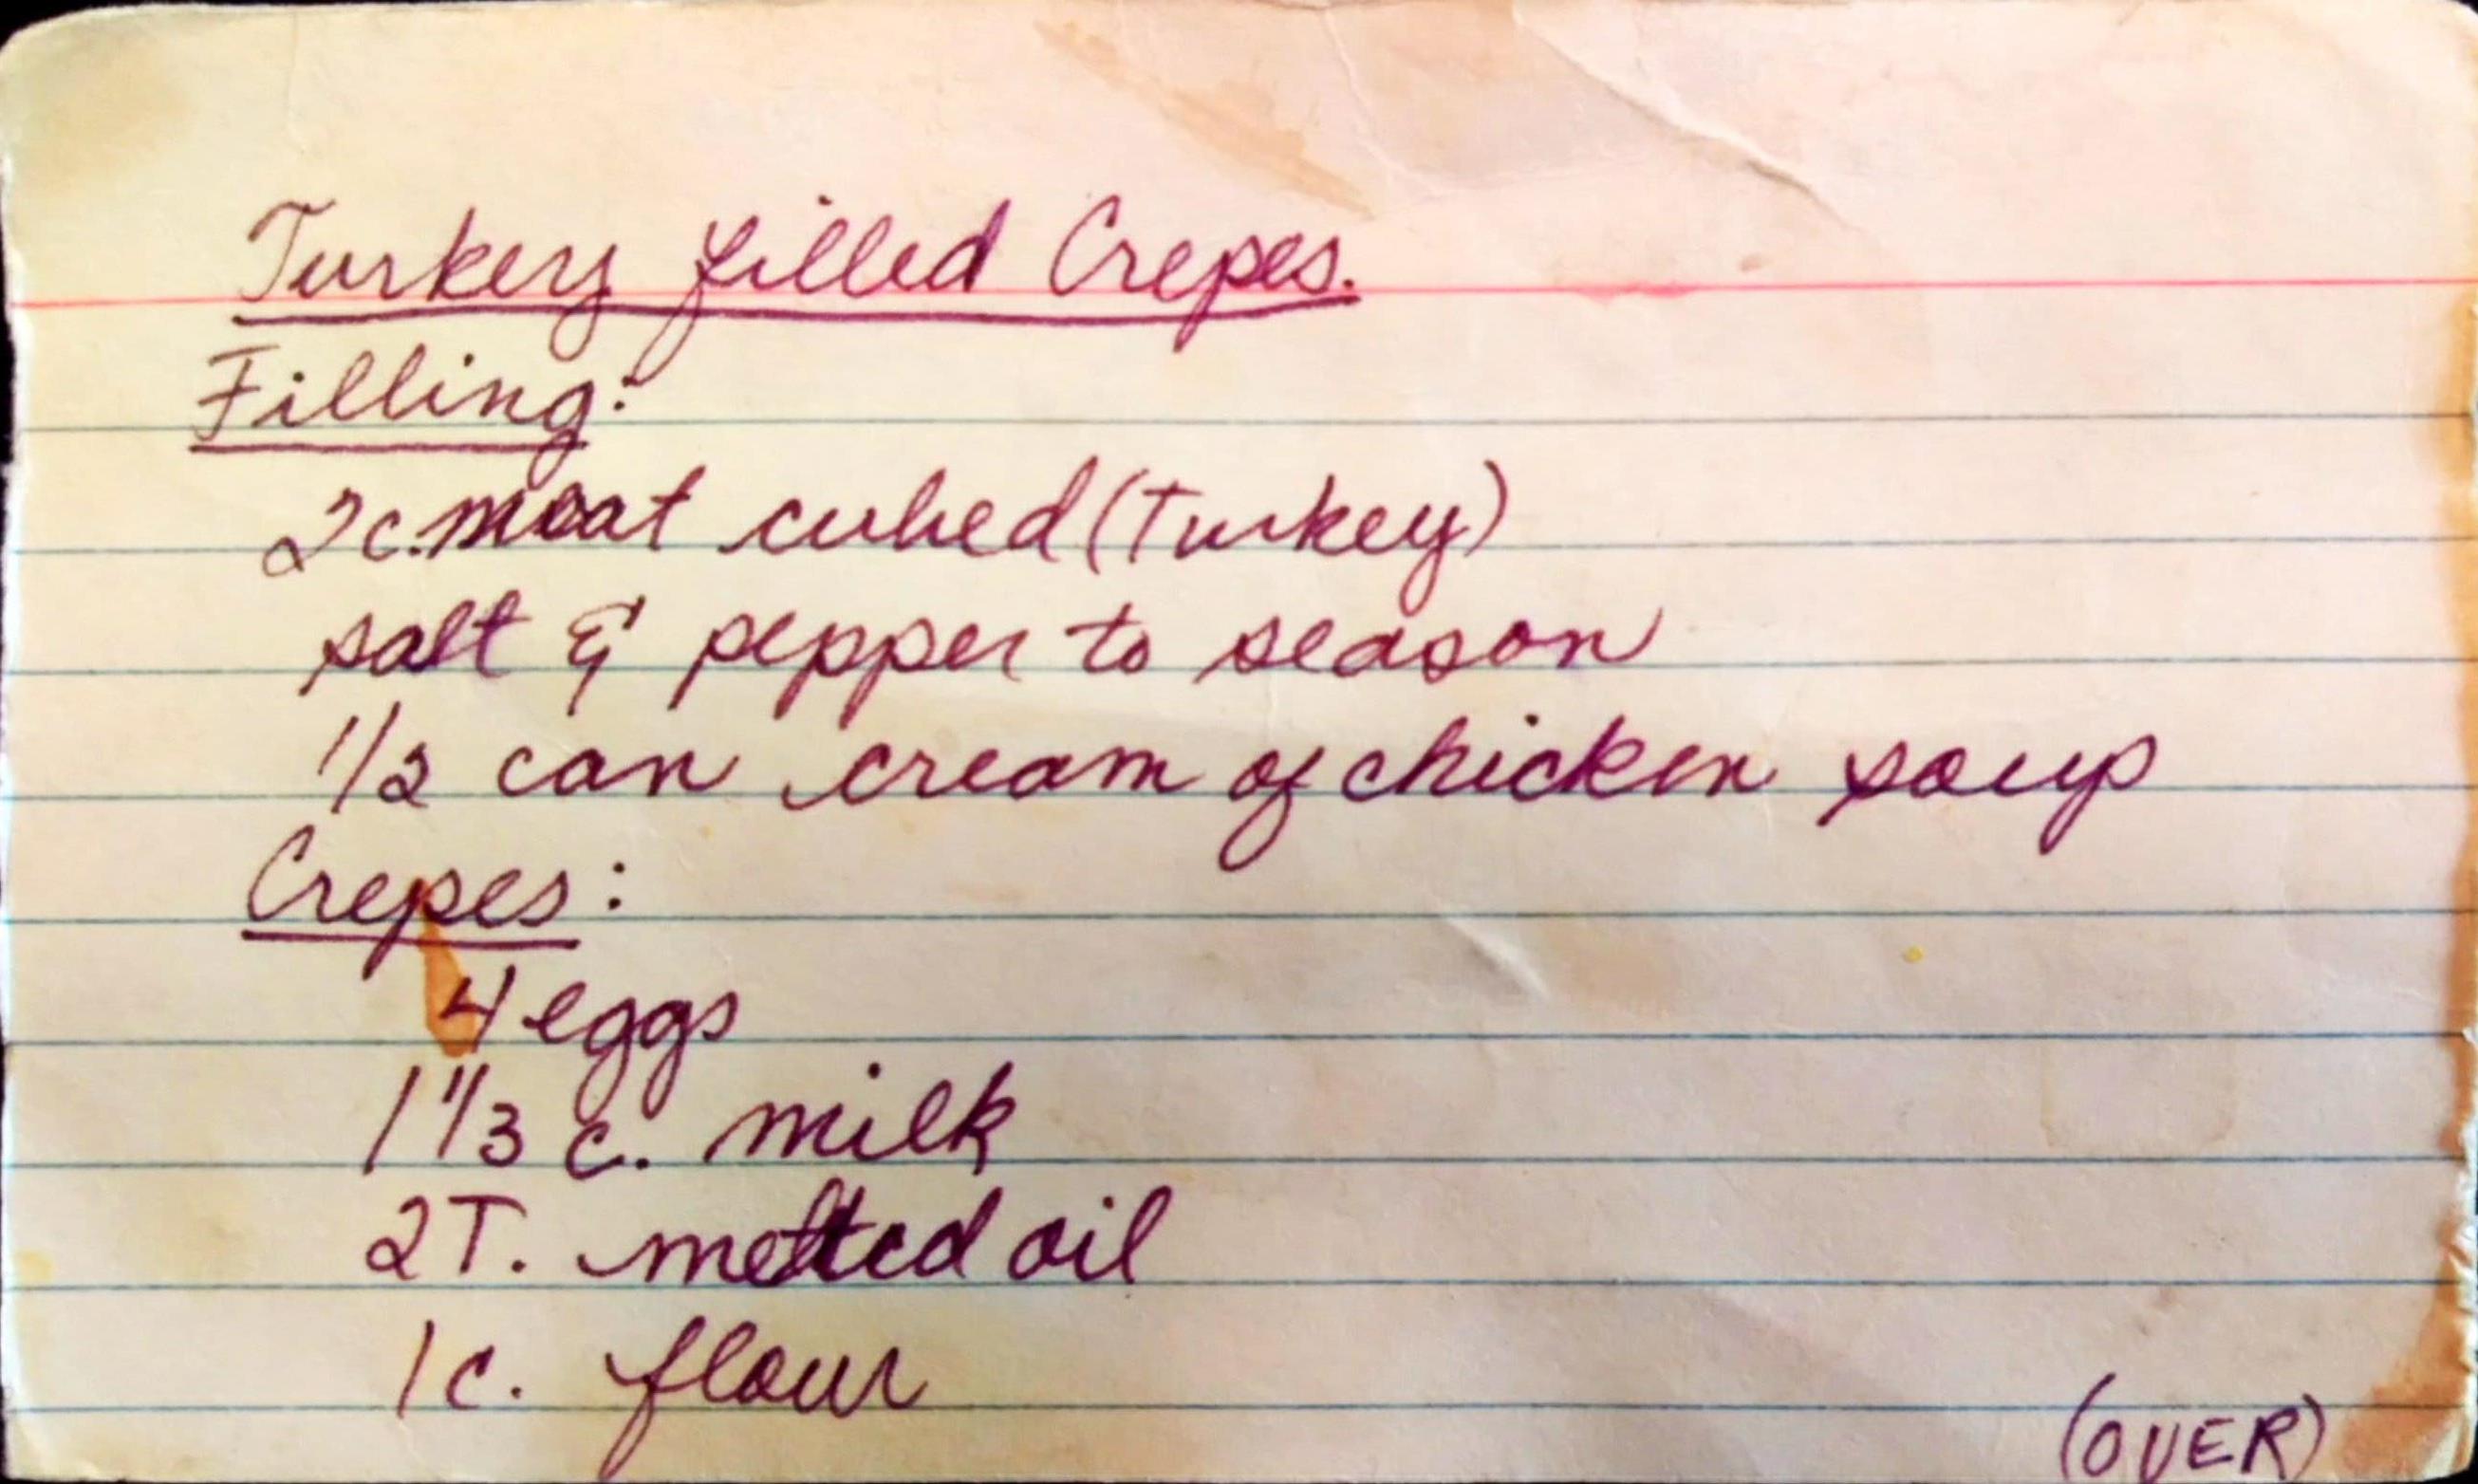 Turkey filled Crepes.
Filling:
2c. meat cubed (Turkey)
salt & pepper to season
1/2 can cream of chicken soup
Crepes:
4 eggs
1 1/3 c. milk
2T. melted oil
1c. flour
(OVER)